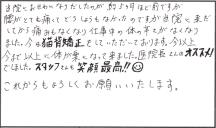 当院にお世話になりだしたのが約5ヶ月ほど前ですが
腰がとても痛くてどうしようもなかったのですが当院に来だ
してから痛みもなくなり仕事中の体の辛さがなくなり
ました。今は猫背矯正をしていただいております。今以上
今までに体が楽になって来ました。医院長さんはオススメ!
でしました。スタッフさんも笑顔最高!!😊
これからもよろしくお願いいたします。